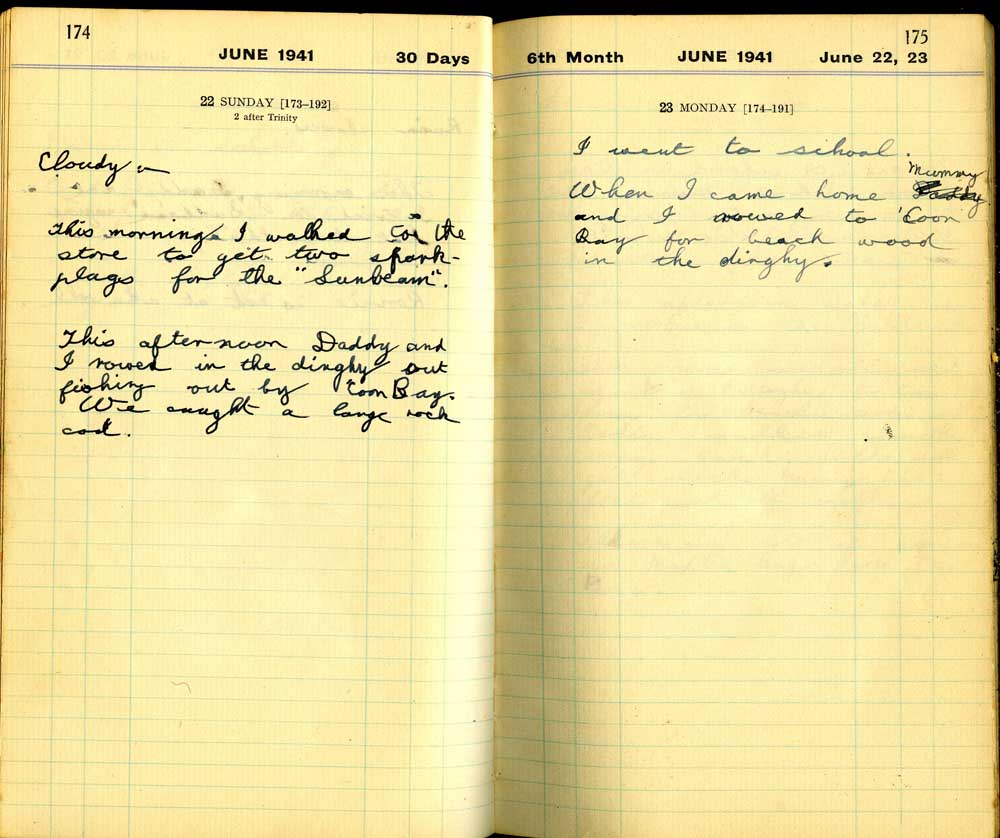 174
JUNE 1941 30 Days
22 SUNDAY [173–192]
2 after Trinity
Cloudy
This morning I walked to the
store to get two spark-
plags for the "Sunbeam".
This after-noon Daddy and
I rowed in the dinghy out
fishing out by 'Coon Bay.
We caught a large rock
cod.
6th Month JUNE 1941 June 22, 23
175
23 MONDAY [174–191]
I went to school.
Mummy
When I came home Daddy
and I rowed to 'Coon
Bay for beach wood
in the dinghy.